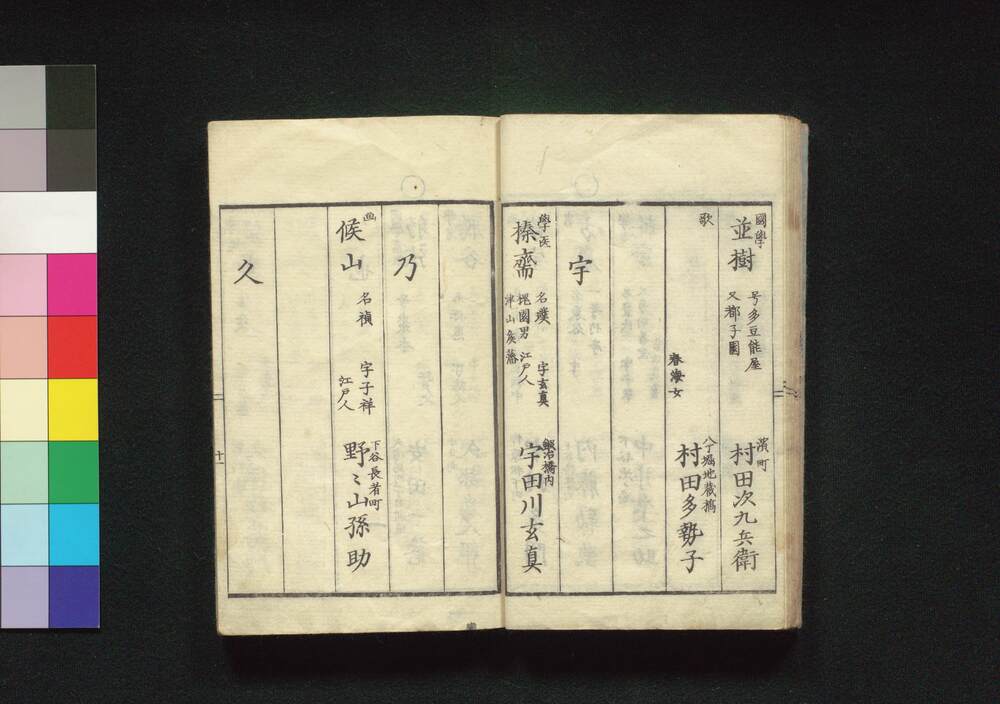 國學
並樹
号多豆能屋
又都子園
濱町
村田次九兵衛
歌
春海女
八丁堀地蔵橋
村田多勢子
宇
學医
榛齋
名璞
字玄真
槐園男 江戸人
津山侯藩
鍛冶橋内
宇田川玄真
乃
画
候山
名禎
字子祥
江戸人
下谷長者町
野々山孫助
久
十一